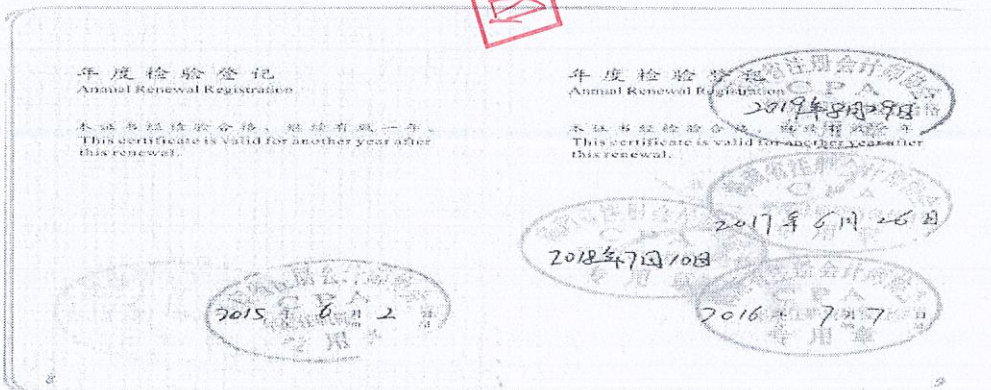 年度检验登记
Annual Renewal Registration
本证书经检验合格，继续有效一年。
This certificate is valid for another year after
this renewal.
2015年6月2日
CPA
专用章
8
年度检验登记
Annual Renewal Registration
省注册会计师协会
CPA
2019年8月29日
本证书经检验合格，继续有效一年
This certificate is valid for another year after
this renewal.
注册会计师协会
CPA
2017年6月26日
专用章
2018年7月10日
专用章
注册会计师协会
CPA
2016年7月7日
专用章
9